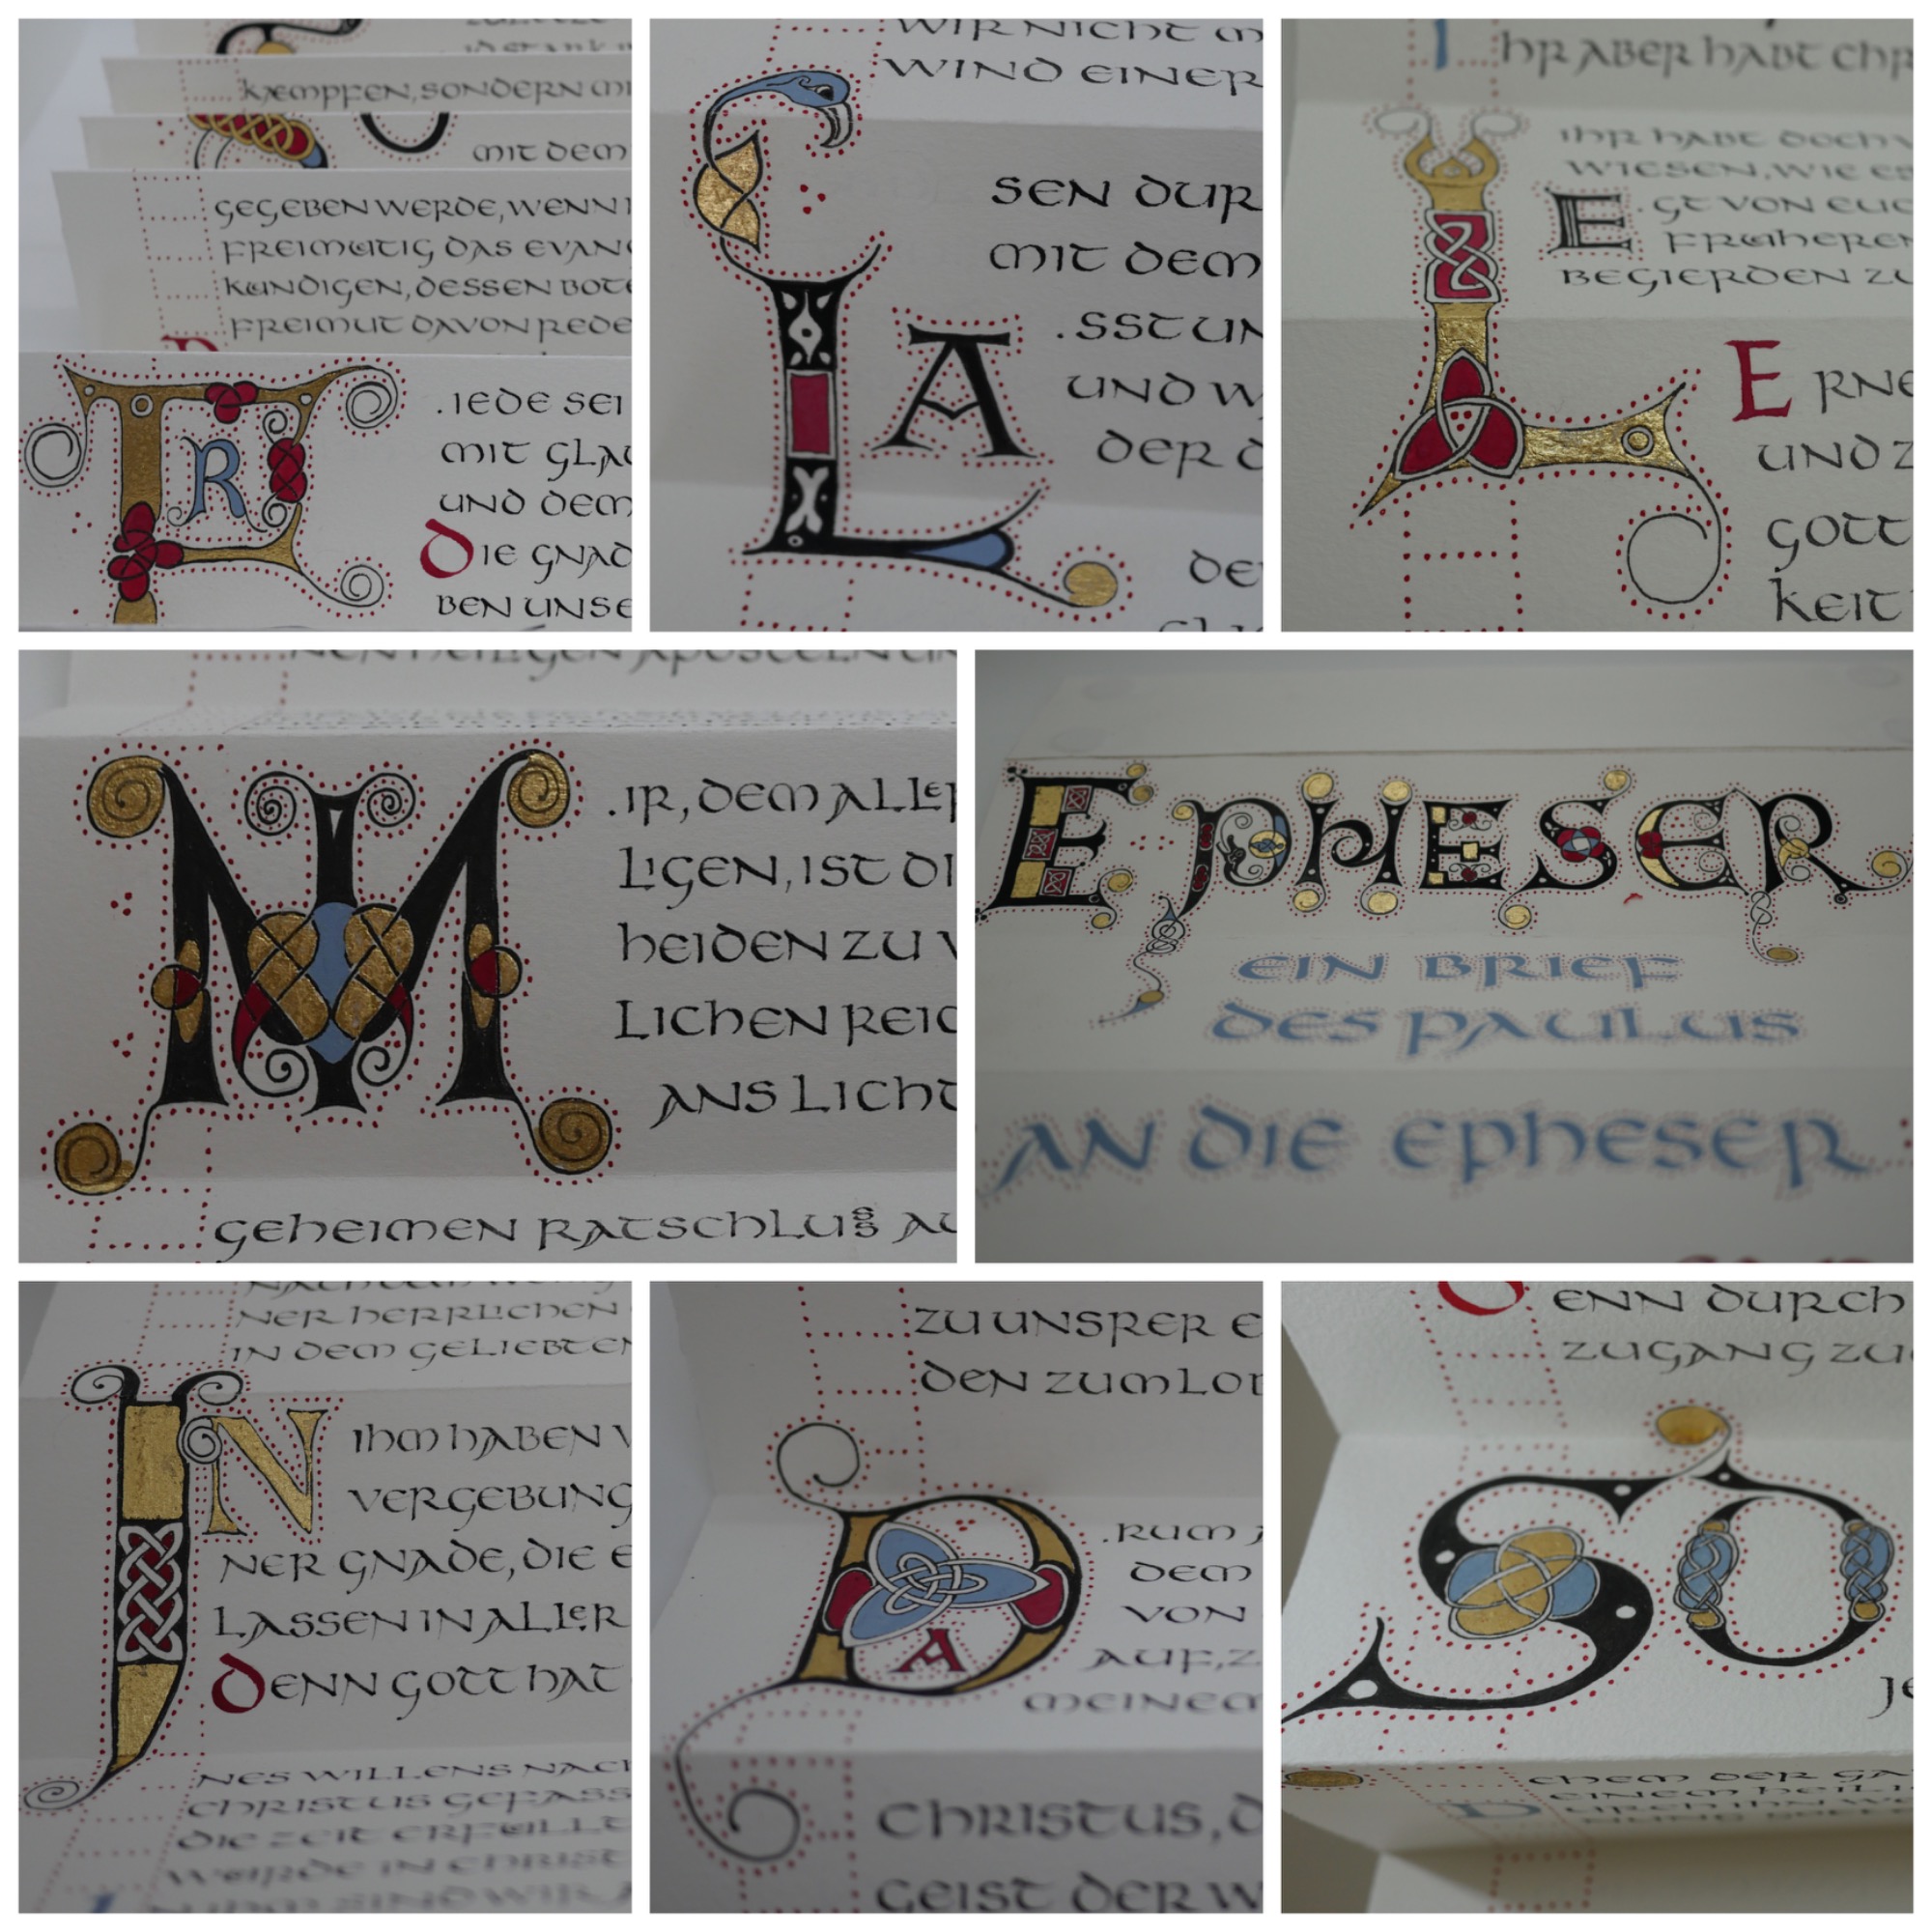 KÆMPFEN, SONDERN MI
MIT DEM
GEGEBEN WERDE, WENN I
FREIMUETIG DAS EVAN
KUENDIGEN, DESSEN BOTE
FREIMUT DAVON REDE
FR
.IEDE SEI
MIT GLAU
UND DEM
DIE GNAD
BEN UNSE
WIR NICHT M
WIND EINER
LA
SEN DUR
MIT DEM
.SST UN
UND W
DER D
DE
IHR ABER HABT CHR
IHR HABT DOCH V
WIESEN, WIE EB
LE
.GT VON EUC
FRUEHEREN
BEGIERDEN ZU
ERNE
UND Z
GOTT
KEIT
NEN HEILIGEN APOSTELN UN
M
.IR, DEM ALLER
LIGEN, IST DI
HEIDEN ZU V
LICHEN REIC
ANS LICHT
GEHEIMEN RATSCHLUSS AU
EPHESER
EIN BRIEF
DES PAULUS
AN DIE EPHESER
NER HERRLICHEN
IN DEM GELIEBTEN
IN
IHM HABEN V
VERGEBUNG
NER GNADE, DIE E
LASSEN IN ALLER
DENN GOTT HAT
NES WILLENS NACH
CHRISTUS GEFASS
DIE ZEIT ERFUELLT
WUERDE IN CHRIST
ZU UNSRER E
DEN ZUM LOB
DA
.RUM A
DEM
VON
AUF, Z
MEINEM
CHRISTUS, D
GEIST DER W
DENN DURCH
ZUGANG ZU
SO
JE
CHEM DER GA
EINEM HEILI
DURCH IHN WE